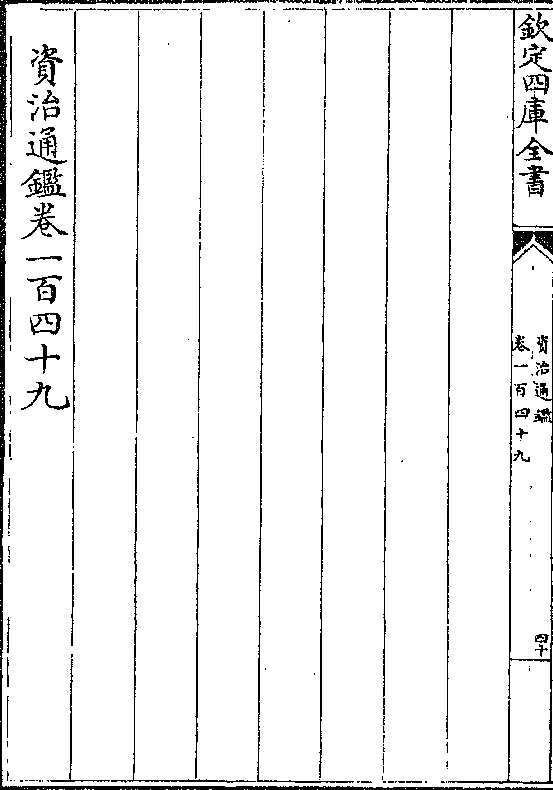 欽定四庫全書
資治通鑑
卷一百四十九
四十
資治通鑑卷一百四十九